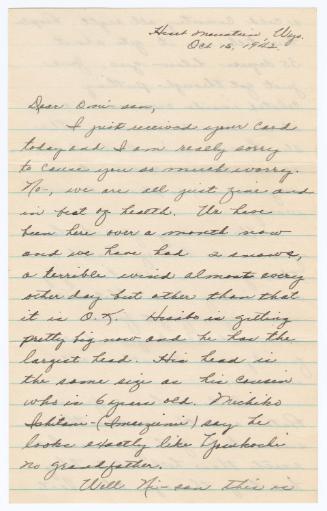 Heart Mountain, Wyo.
Oct 15, 1942
Dear Oni-san,
I just received your card
today and I am really sorry
to cause you so much worry.
No-, we are all just fine and
in best of health. We have
been here over a month now
and we have had 2 snows,
a terrible wind almost every
other day but other than that
it is O.K. is getting
pretty big now and he has the
largest head. His head is
the same size as his cousin
who is 6 years old. Michiko
say he
looks exactly like
no grandfather.
Well Ni-san this is